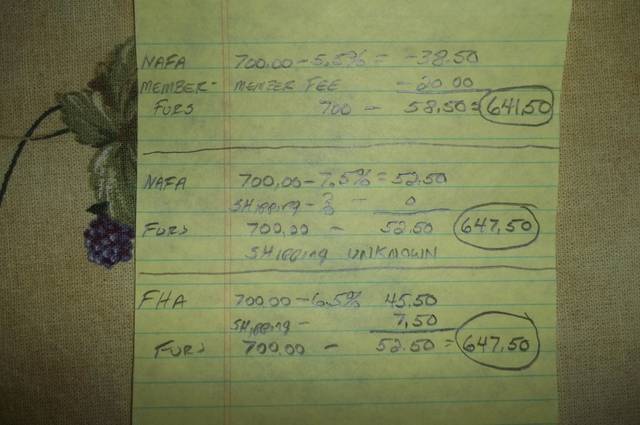 NAFA 700.00 - 5.5% = -38.50
MEMBER- MEMBER FEE -20.00
FURS 700 - 58.50 = 641.50
NAFA 700.00 - 7.5% = 52.50
SHIPPING - ? - 0
FURS 700.00 - 52.50 647.50
SHIPPING UNKNOWN
FHA 700.00 - 6.5% 45.50
SHIPPING - 7.50
FURS 700.00 - 52.50 = 647.50